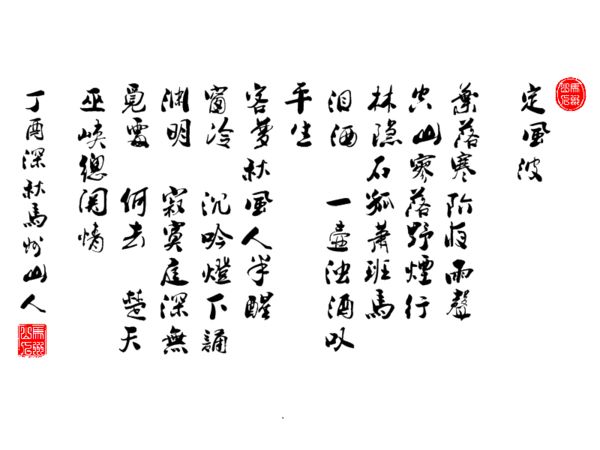 定風波
葉落寒阶夜雨聲
空山寥落野煙行
林隐石孤萧班馬
泪洒 一壶浊酒叹
平生
客夢秋風人半醒
窗冷 沉吟燈下誦
渊明 寂寞庭深無
覓處 何去 楚天
巫峡總関情
丁酉深秋馬州山人